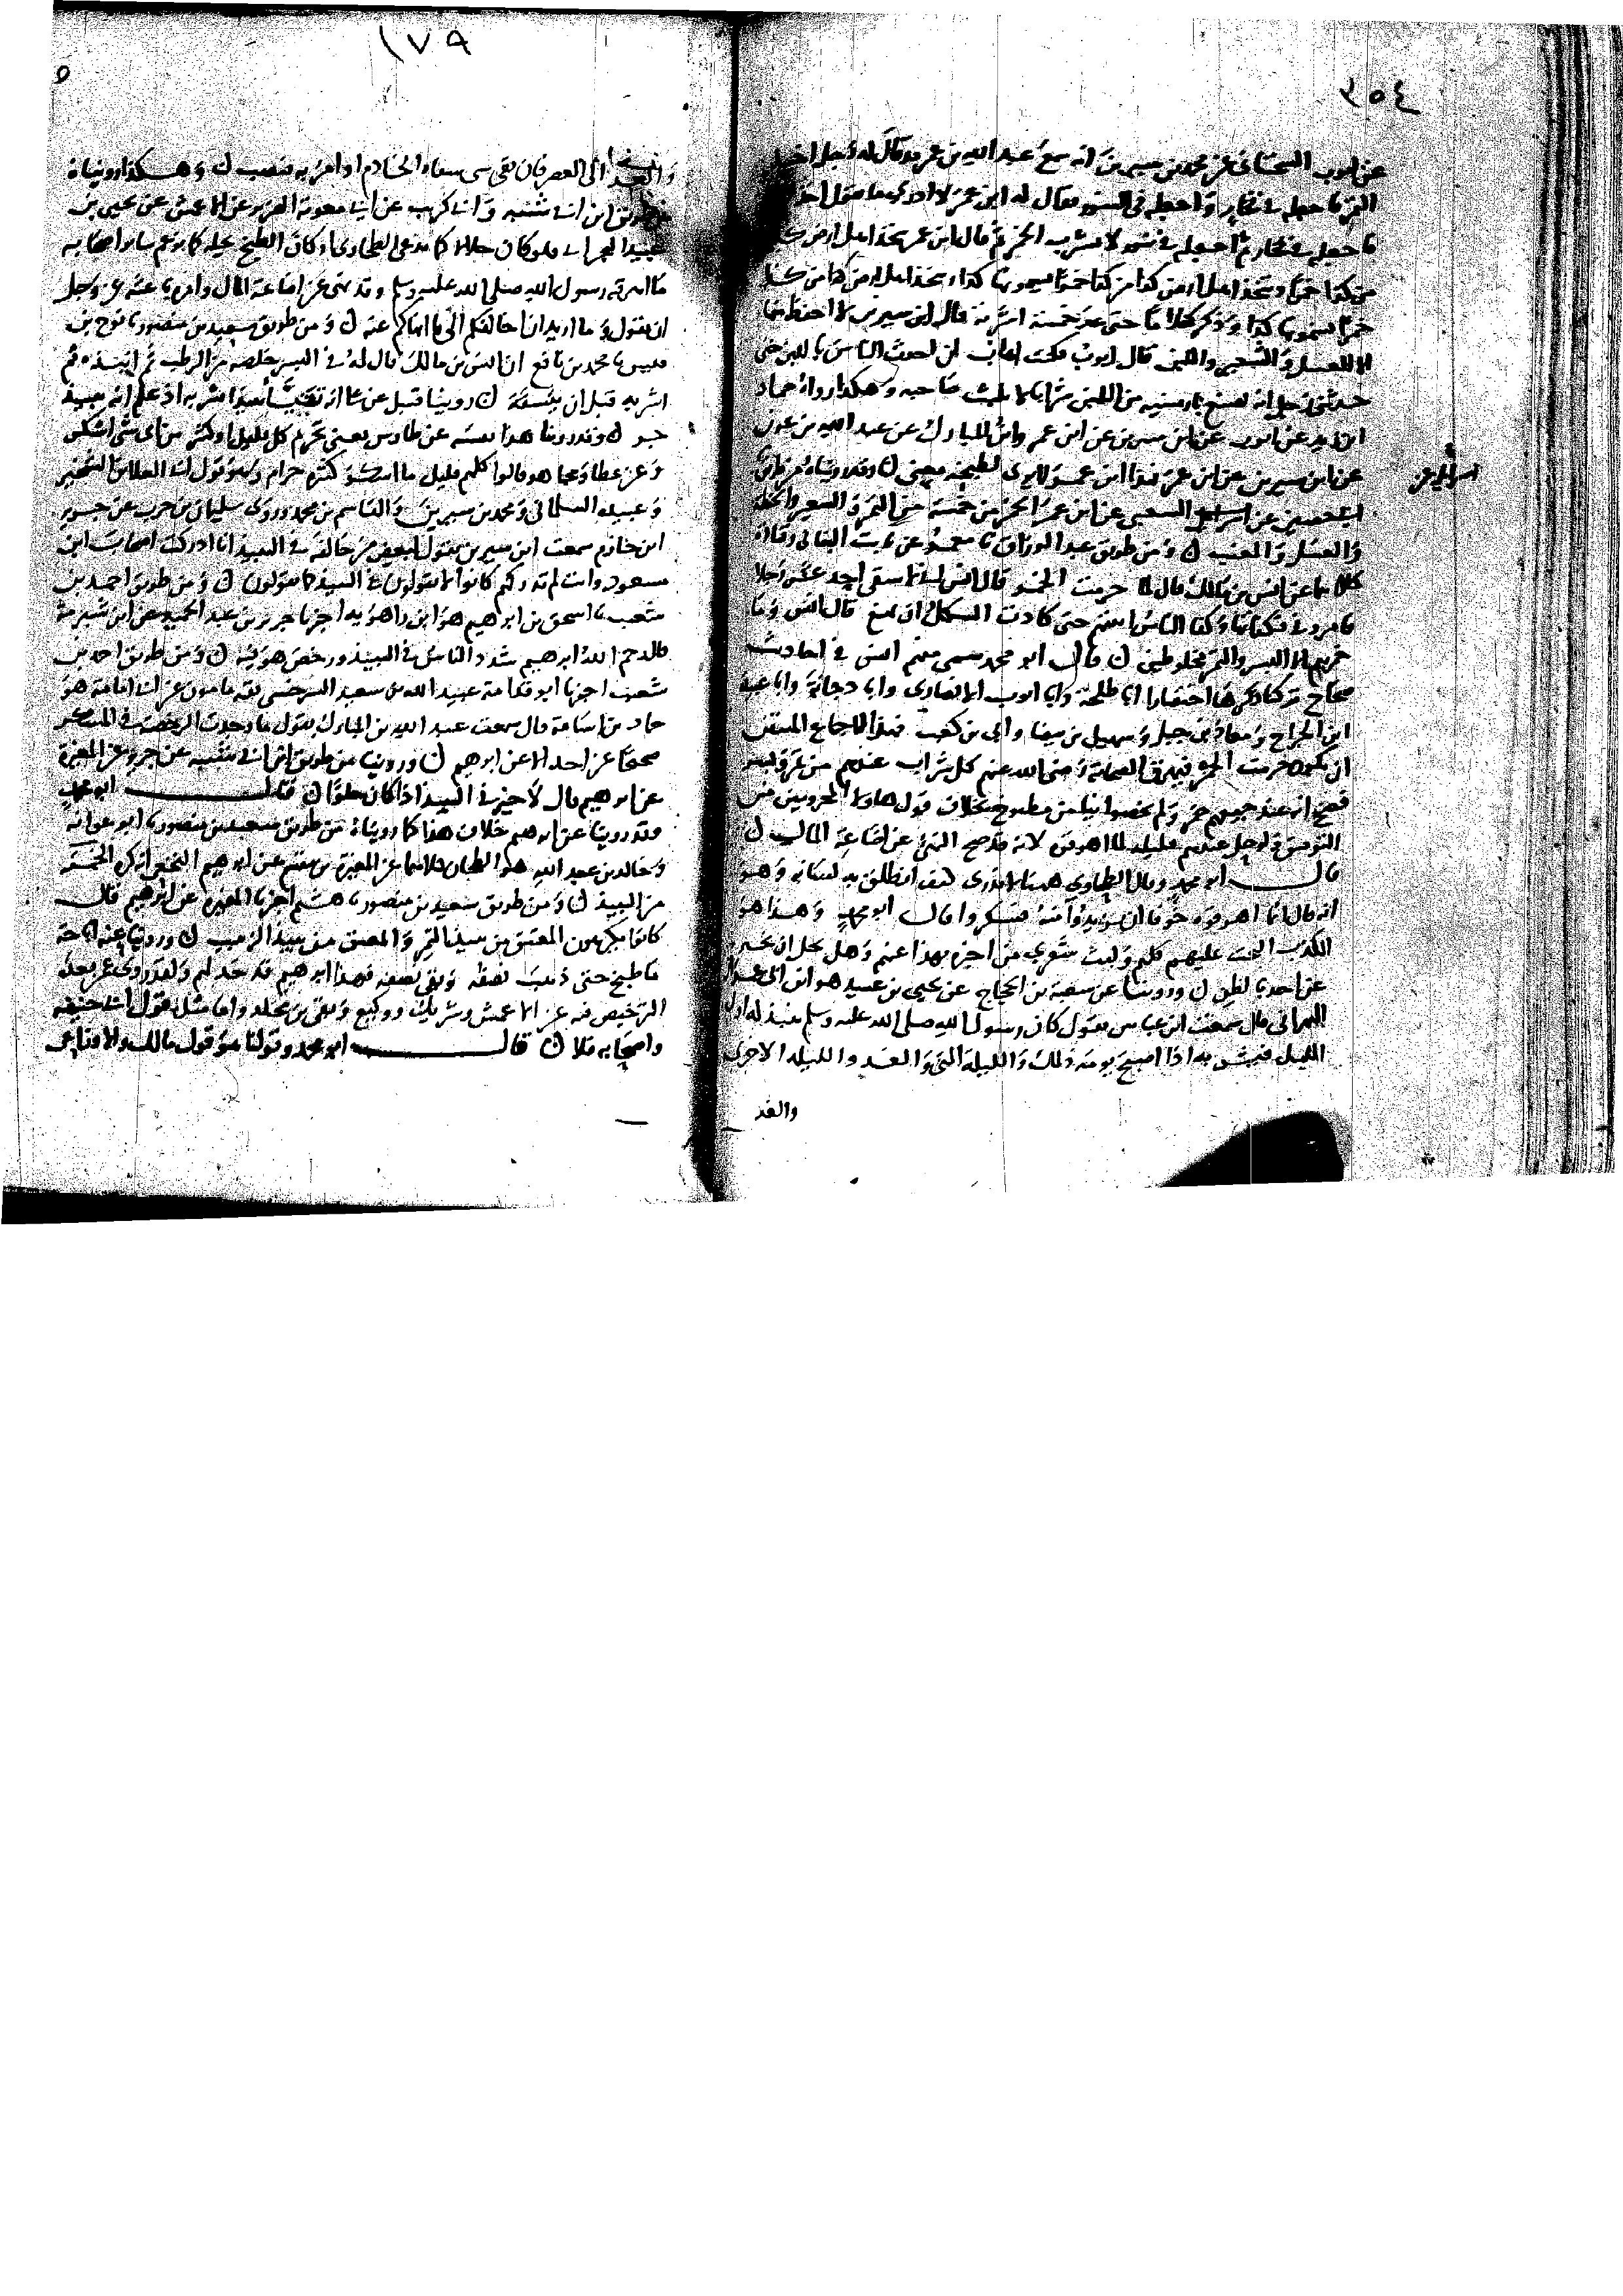 ٣٥٤
عن ايوب السختيانى عن محمد بن سيرين انه سمع عبد الله بن عمر وقال له رجل اخذ
التمر فاجعله فى فخار واجعله فى التنور فقال له ابن عمر لا ادرى ما تقول اخذ
فاجعله فى فخار ثم اجعله فى تنور لا تشرب الخمر ثم قال ابن عمر يتخذ اهل ارض كذا
من كذا خمرا ويتخذ اهل ارض كذا من كذا خمرا يسمونها كذا ويتخذ اهل ارض كذا من كذا
خمرا يسمونها كذا وذكر كلاما حتى عد خمسة اشربة قال ابن سيرين لا احفظ منها
الا العسل والشعير واللبن قال ايوب فكنت اهاب ان احدث الناس باللبن حتى
حدثنى رجل انه يصنع بارمينية من اللبن شراب لا يلبث صاحبه وهكذا رواه حماد
ابن زيد عن ايوب عن ابن سيرين عن ابن عمر وابن المبارك عن عبد الله بن عون
عن ابن سيرين عن ابن عمر فهذا ابن عمر لا يرى لطبخه معنى ن وقد رويناه من طريق
ابى حصين عن الشعبى عن ابن عمر الخمر من خمسة من التمر والشعير والحنطة
اسرائيل عن
والعسل والعنب ن ومن طريق عبد الرزاق نا معمر عن ثابت البنانى وقتادة
كلاهما عن انس بن مالك قال لما حرمت الخمر قال انس انى لاسقى احد عشر رجلا
فامرونى فكفاتها وكفا الناس انيتهم حتى كادت السكك ان تمنع قال انس وما
خمرهم الا البسر والتمر مخلوطين ن قال ابو محمد سمى منهم انس فى احاديث
صحاح تركنا ذكرها اختصارا ابا طلحة وابا ايوب الانصارى وابا دجانة وابا عبيدة
ابن الجراح ومعاذ بن جبل وسهيل بن بيضا وابى بن كعب فهذا الاجماع المتيقن
ان تكون حرمت الخمر فيهرق الصحابة رضى الله عنهم كل شراب عندهم من تمر وبسر
فصح انه عند جميعهم خمر ولم يخصوا نيا من مطبوخ بخلاف قول هاولا المحرومين من
التوفيق ولو حل عندهم قليله لما اهرقوه لانه قد صح النهى عن اضاعة المال ن
قال ابو محمد وقال الطحاوى ههنا لا ندرى كيف انطلق به لسانه وهو
انه قال انما اهرقوه خوفا ان يزيدوا منه فيسكروا قال ابو محمد وهذا هو
الكذب البحت عليهم كلهم وليت شعرى من اخبره بهذا عنهم وهل يحل ان يخبر
عن احد بالظن ن وروينا عن شعبة بن الحجاج عن يحيى بن عبيد هو ابن ابى عمر
البهرانى قال سمعت ابن عباس يقول كان رسول الله صلى الله عليه وسلم ينبذ له اول
الليل فيشربه اذا اصبح يومه ذلك والليلة التى والغد والليلة الاخرى
والغد
١٧٩
والغد الى العصر فان بقى شى سقاه الخادم او امر به فصب ن وهكذا رويناه
من طريق ابن ابى شيبة وابى كريب عن ابى معوية الضرير عن الاعمش عن يحيى بن
عبيد البهرانى فلو كان حلالا كما يدعى الطحاوى او كان الطبخ يحيله كما يزعم ساير اصحابه
ما اهرقه رسول الله صلى الله عليه وسلم وقد نهى عن اضاعة المال وامرنا عنه عز وجل
ان يقول وما اريد ان اخالفكم الى ما انهاكم عنه ن ومن طريق سعيد بن منصور نا نوح بن
قيس نا محمد بن نافع ان انس بن مالك قال له فى البسر خلصه من الرطب ثم انبذه ثم
اشربه قبل ان يئسنه ن روينا قبل عن
جبر ن وقد روينا هذا نفسه عن طاوس يعنى تحريم كل قليل او كثير من اى شى اسكر
وعن عطا ومجاهد قالوا كلهم قليل ما اسكر كثيره حرام وهو قول ابى العلا بن الشخير
وعبيدة السلمانى ومحمد بن سيرين والقاسم بن محمد وروى سليمان بن حرب عن جرير
ابن حازم سمعت ابن سيرين يقول لبعض من خالفه فى النبيذ انا ادركت اصحاب ابن
مسعود وانت لم تدركهم كانوا لا يقولون فى النبيذ كما تقولون ن ومن طريق احمد بن
شعيب نا اسحق بن ابراهيم هو ابن راهويه اخبرنا جرير بن عبد الحميد عن ابن شبرمة
قال رحم الله ابرهيم شدد الناس فى النبيذ ورخص هو فيه ن ومن طريق احمد بن
شعيب اخبرنا ابو قدامة عبيد الله بن سعيد السرخسى ثقة مامون عن ابى اسامة هو
حماد بن اسامة قال سمعت عبد الله بن المبارك يقول ما وجدت الرخصة فى المسكر
صحيحا عن احد الا عن ابرهيم ن وروينا من طريق ابن ابى شيبة عن جرير عن المغيرة
عن ابرهيم قال لا خير فى النبيذ اذا كان حلوا ن قال ابو محمد
وقد روينا عن ابرهيم خلاف هذا كما رويناه من طريق سعيد بن منصور نا ابو عوانة
وخالد بن عبد الله هو الطحان كلاهما عن المغيرة بن مقسم عن ابرهيم النخعى انه كره المختمر
من النبيذ ن ومن طريق سعيد بن منصور نا هشيم اخبرنا المغيرة عن ابرهيم قال
كانوا يكرهون المعتق من نبيذ التمر والمعتق من نبيذ الزبيب ن وروينا عنه اباحة
ما طبخ حتى ذهب نصفه وبقى نصفه فهذا ابرهيم قد حد لهم ولقد روى عن بعد
الترخيص فيه عن الاعمش وشريك ووكيع وبقى بن مخلد واما مثل قول ابى حنيفة
واصحابه فلا ن قال ابو محمد وقولنا هو قول مالك والاوزاعى